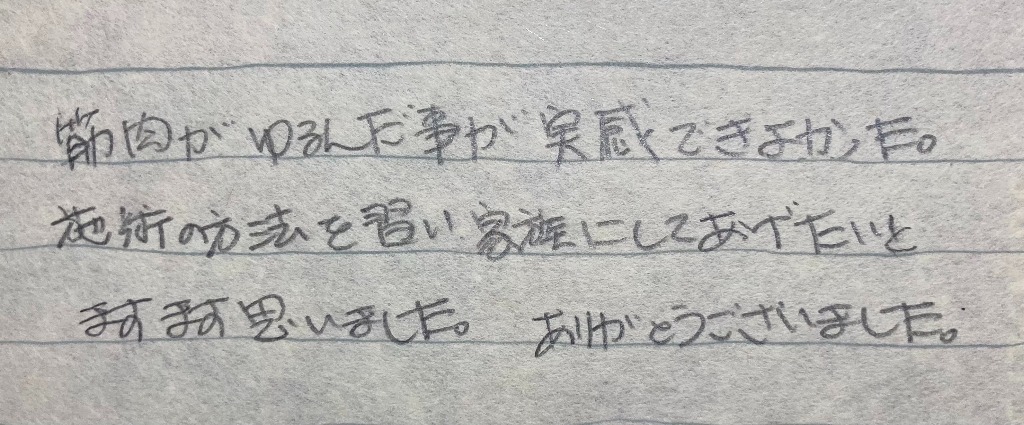 筋肉がゆるんだ事が実感できよかった。
施術の方法を習い家族にしてあげたいと
ますます思いました。 ありがとうございました。